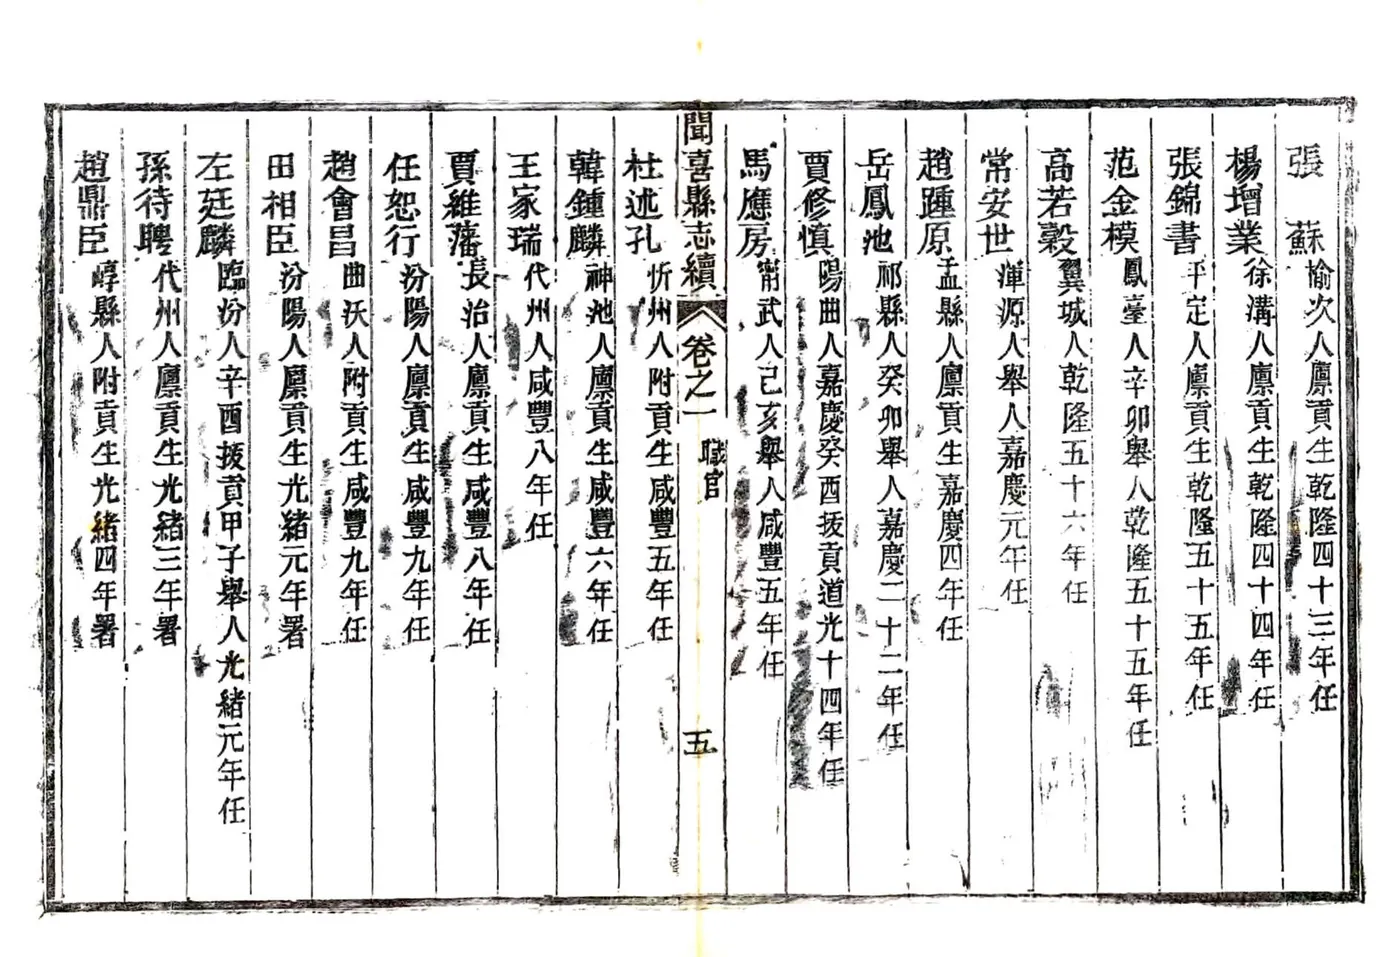 張　蘇榆次人廪貢生乾隆四十三年任
楊增業徐溝人廪貢生乾隆四十四年任
張錦書平定人廪貢生乾隆五十五年任
范金模鳳臺人辛卯舉人乾隆五十五年任
高若穀翼城人乾隆五十六年任
常安世渾源人舉人嘉慶元年任
趙踵原盂縣人廪貢生嘉慶四年任
岳鳳池祁縣人癸卯舉人嘉慶二十二年任
賈修慎陽曲人嘉慶癸酉拔貢道光十四年任
馬應房甯武人己亥舉人咸豐五年任
聞喜縣志續 卷之一 職官 五
杜述孔忻州人附貢生咸豐五年任
韓鍾麟神池人廪貢生咸豐六年任
王家瑞代州人咸豐八年任
賈維藩長治人廪貢生咸豐八年任
任恕行汾陽人廪貢生咸豐九年任
趙會昌曲沃人附貢生咸豐九年任
田相臣汾陽人廪貢生光緒元年署
左廷麟臨汾人辛酉拔貢甲子舉人光緒元年任
孫待聘代州人廪貢生光緒三年署
趙鼎臣崞縣人附貢生光緒四年署